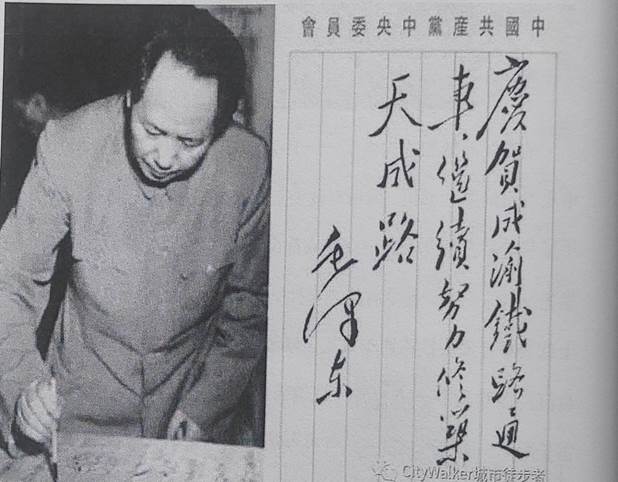 會員委央中黨産共國中
慶賀成渝鐵路通
車、繼續努力修築
天成路
毛澤东
CityWalker城市徒步者